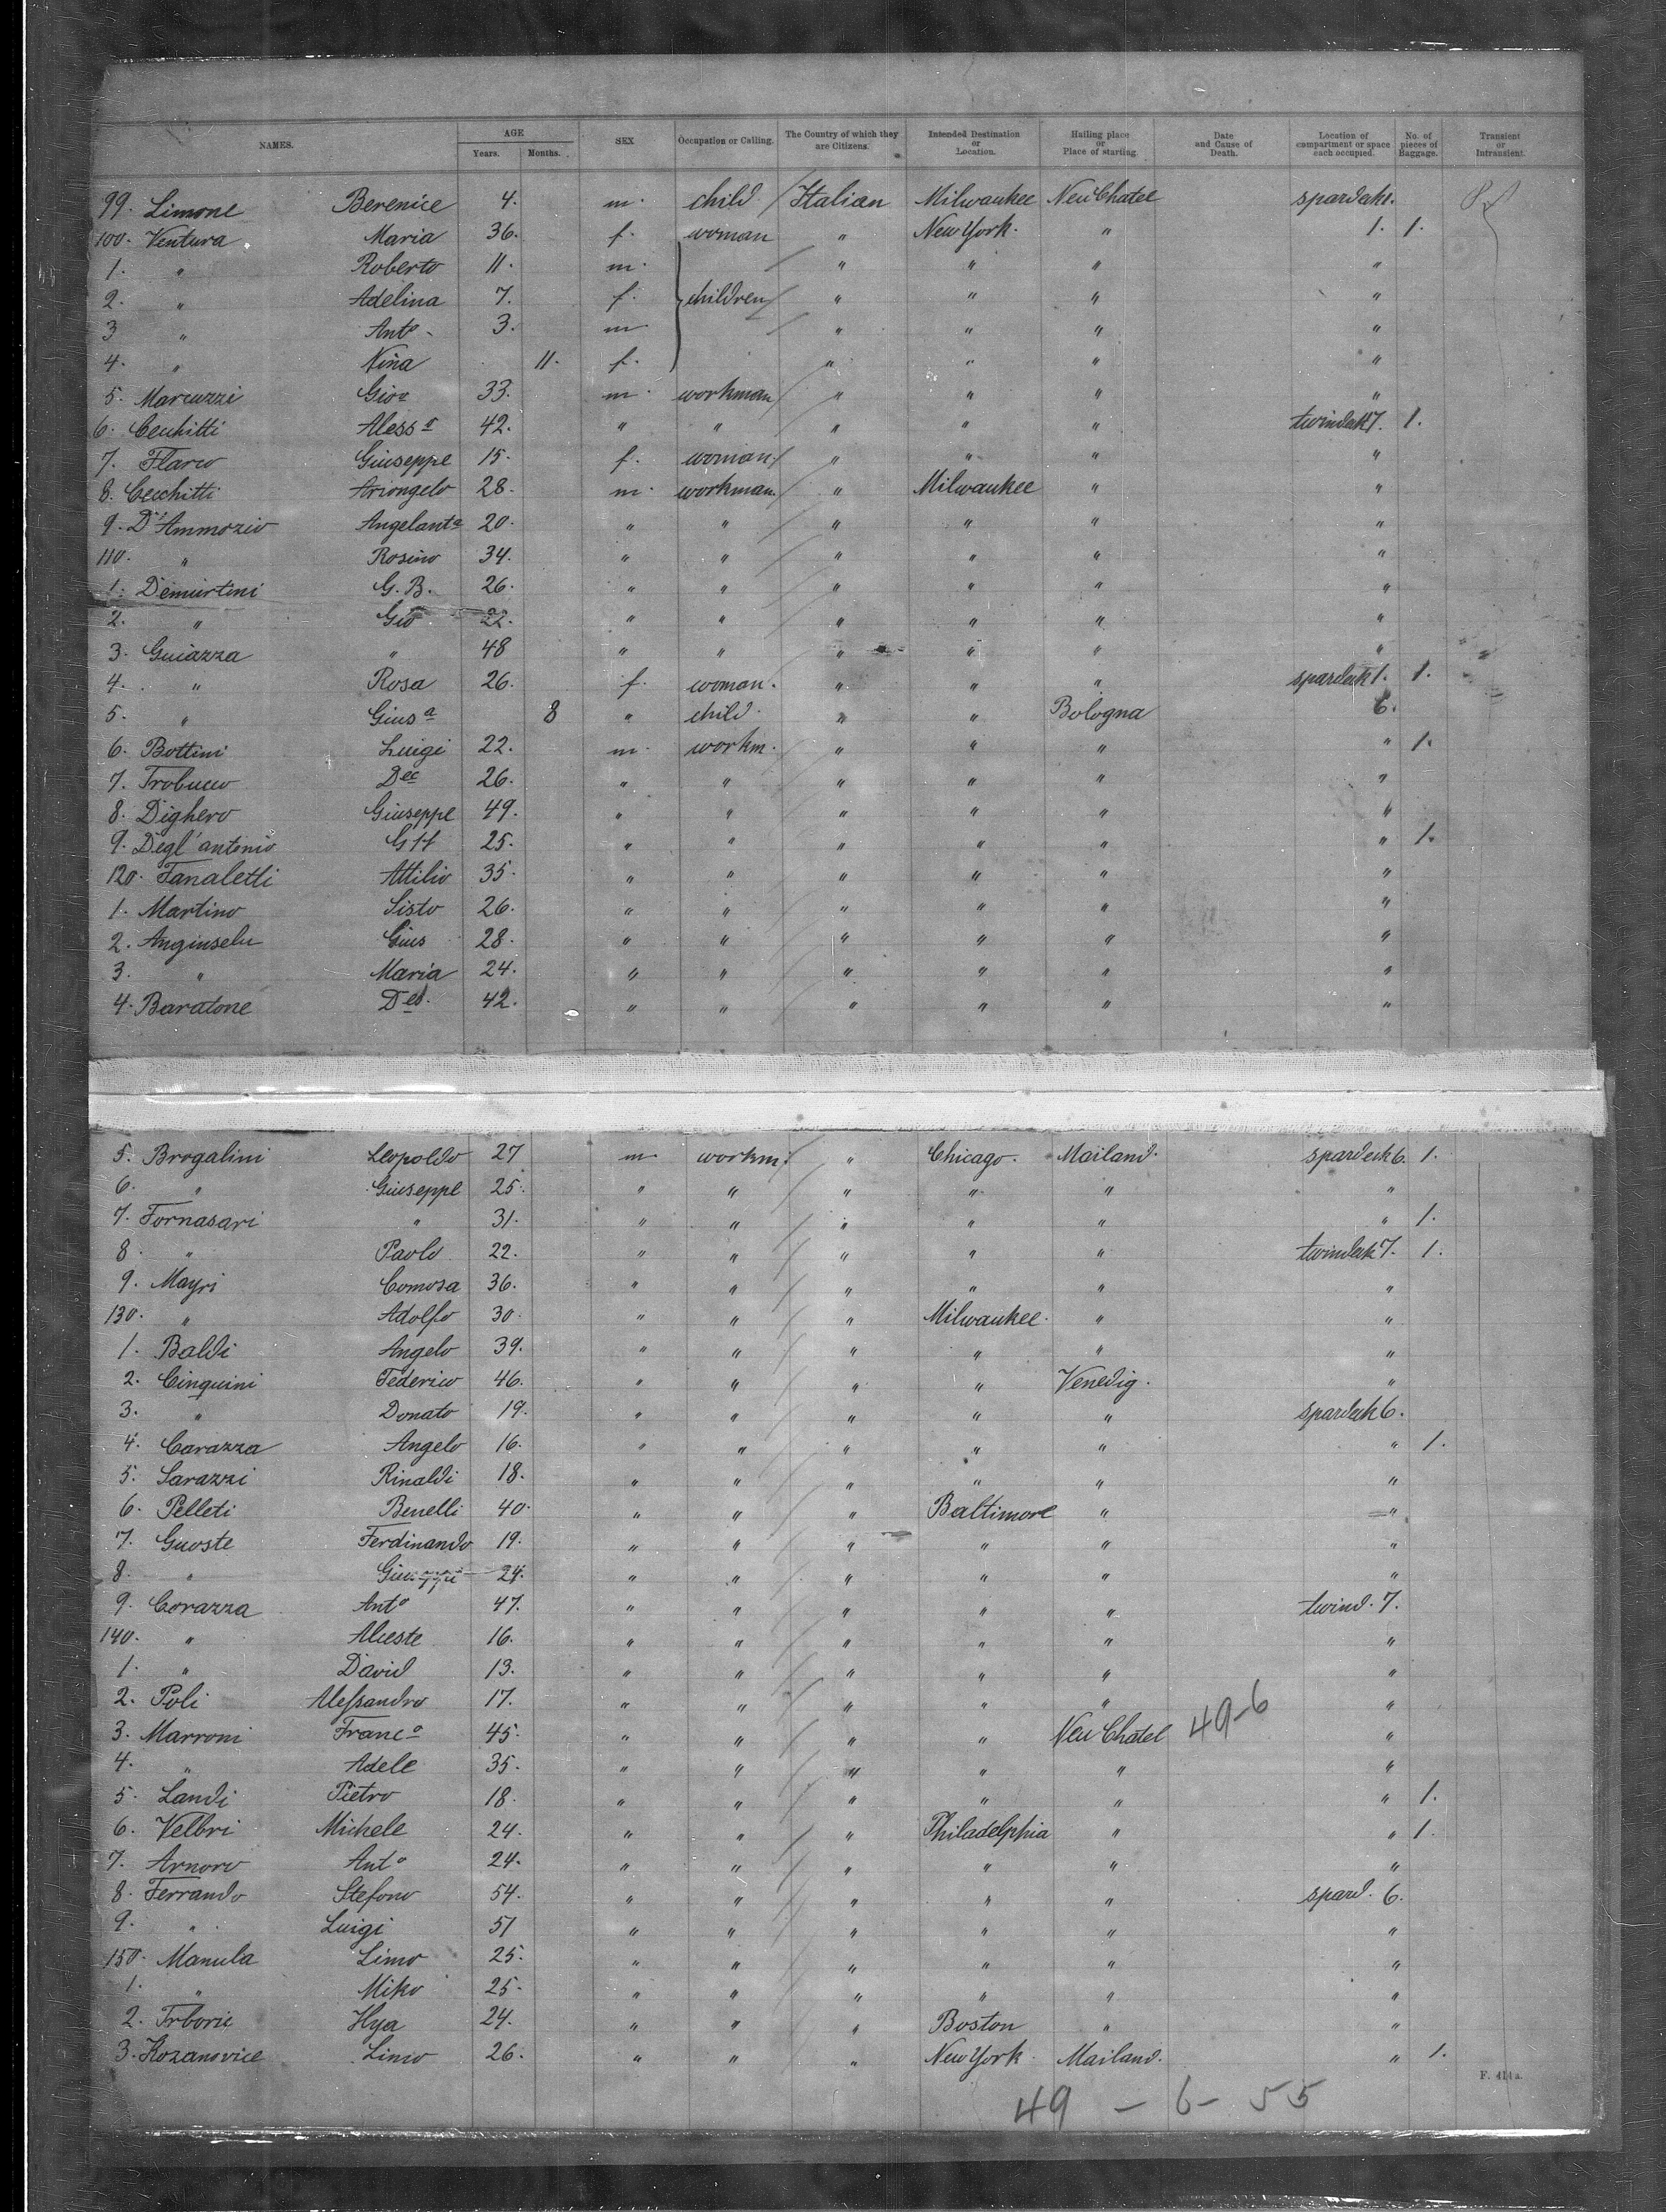 NAMES. AGE Years. Months. SEX Occupation or Calling. The Country of which they are Citizens. Intended Destination or Location. Hailing place or Place of starting. Date and Cause of Death. Location of compartment or space each occupied. No. of pieces of Baggage. Transient or Intransient.
99. Limone Berenice 4. m. child Italian Milwaukee Neu Chatel spardek 1.
100. Ventura Maria 36. f. woman " New York. " 1. 1.
1. " Roberto 11. m. " " " "
2. " Adelina 7. f. children " " " "
3 " Anto - 3. m " " " "
4. " Nina 11. f. " " " "
5. Marcuzzi Gioa 33. m. workman " " " "
6. Cechitti Aless o 42. " " " " " twindek 7. 1.
7. Flarco Giuseppe 15. f. woman " " " "
8. Cecchitti Ariongelo 28. m. workman. " Milwaukee " "
9. D'Ammozio Angelanta 20. " " " " " "
110. " Rosino 34. " " " " " "
1. Demurtini G. B. 26. " " " " " "
2. " Gio 22. " " " " " "
3. Guiazza " 48 " " " " " "
4. " Rosa 26. f. woman. " " " spardeck 1. 1.
5. " Gius a 8 " child. " " Bologna 6.
6. Bottini Luigi 22. m. workm. " " " " 1.
7. Trobucco Dec 26. " " " " " "
8. Dighero Giuseppe 49. " " " " " "
9. Degl' antonio 25. " " " " " " 1.
120. Fanaletti Attilio 35. " " " " " "
1. Martino Sisto 26. " " " " " "
2. Anginselu Gius 28. " " " " " "
3. " Maria 24. " " " " " "
4. Baratone Deo. 42. " " " " " "
5. Brogalini Leopoldo 27 m workm. " Chicago. Mailand. spardeck 6. 1.
6. " Giuseppe 25. " " " " " "
7. Fornasari " 31. " " " " " " 1.
8. " Paolo 22. " " " " " twindek 7. 1.
9. Mayri Comosa 36. " " " " " "
130. " Adolfo 30. " " " Milwaukee. " "
1. Baldi Angelo 39. " " " " " "
2. Cinquini Federico 46. " " " " Venedig. "
3. " Donato 19. " " " " " spardeck 6.
4. Carazza Angelo 16. " " " " " " 1.
5. Sarazzi Rinaldi 18. " " " " " "
6. Pelleti Benelli 40. " " " Baltimore " "
7. Guoste Ferdinando 19. " " " " " "
8. " 24. " " " " " "
9. Corazza Anto 47. " " " " " twind. 7.
140. " Alceste 16. " " " " " "
1. " David 13. " " " " " "
2. Poli Alessandro 17. " " " " " "
3. Marroni Franc o 45. " " " " Neu Chatel 49-6 "
4. " Adele 35. " " " " " "
5. Landi Pietro 18. " " " " " " 1.
6. Velbri Michele 24. " " " Philadelphia " " 1.
7. Arnoro Anto 24. " " " " " "
8. Ferrando Stefono 54. " " " " " spard. 6.
9. " Luigi 51 " " " " " "
150. Manula Limo 25. " " " " " "
1. " Miko 25. " " " " " "
2. Trboric Ilya 24. " " " Boston " "
3. Kozanovice Limo 26. " " " New York. Mailand. " 1.
F. 414a.
49 - 6 - 55